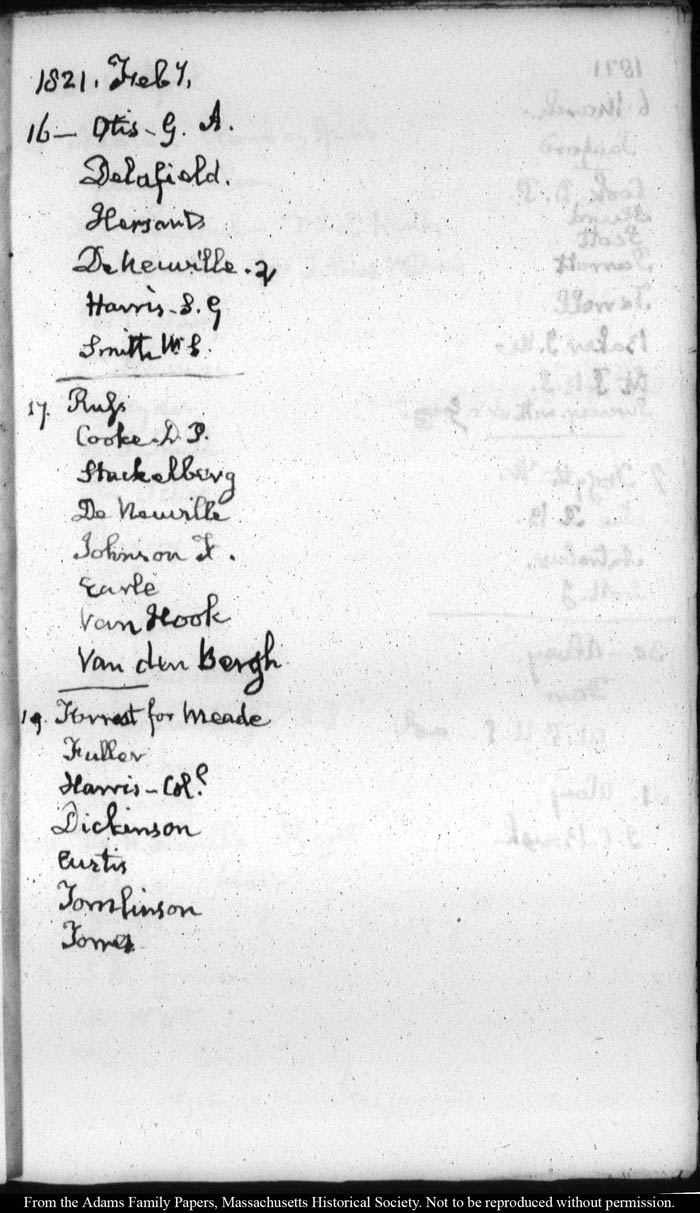 1821. Feby.
16 — Otis - G. A.
Delafield.
Hersant
De Neuville. 2
Harris - S. G
Smith W. S.
17. Rufs
Cooke. D. P.
Stackelberg
De Neuville
Johnson F.
Earle
Van Hook
Van den Bergh
19. Forrest for Meade
Fuller
Harris - Col.
Dickinson
Curtis
Tomlinson
Torres
From the Adams Family Papers, Massachusetts Historical Society. Not to be reproduced without permission.